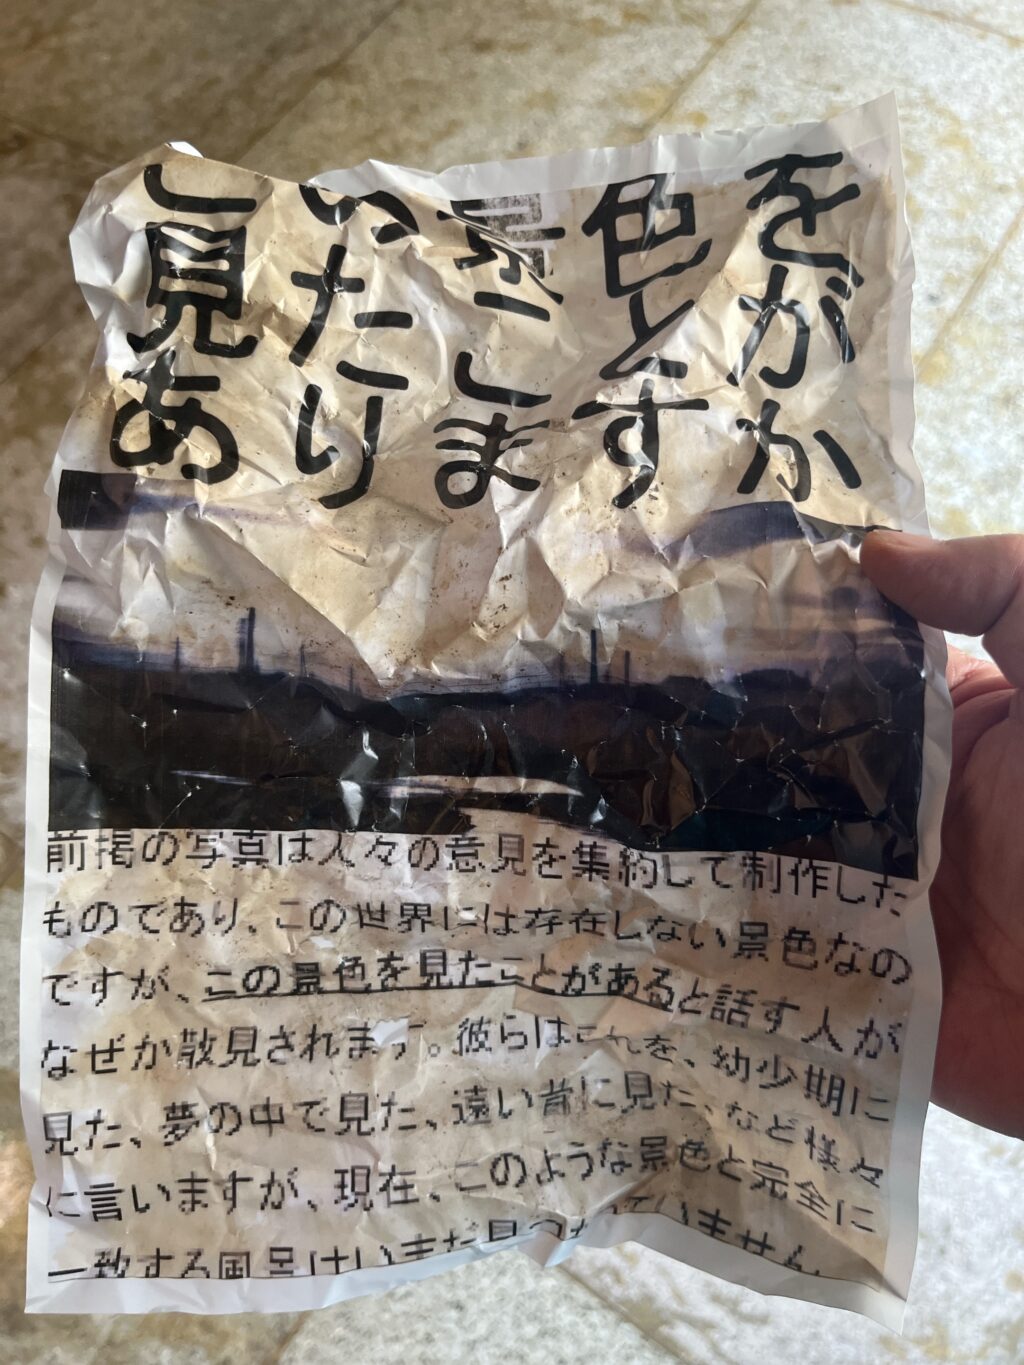 しい景色を
見たことが
ありますか
前掲の写真は人々の意見を集約して制作した
ものであり、この世界には存在しない景色なの
ですが、この景色を見たことがあると話す人が
なぜか散見されます。彼らはこれを、幼少期に
見た、夢の中で見た、遠い昔に見た、など様々
に言いますが、現在、このような景色と完全に
一致する風景はいまだ見つかっていません。